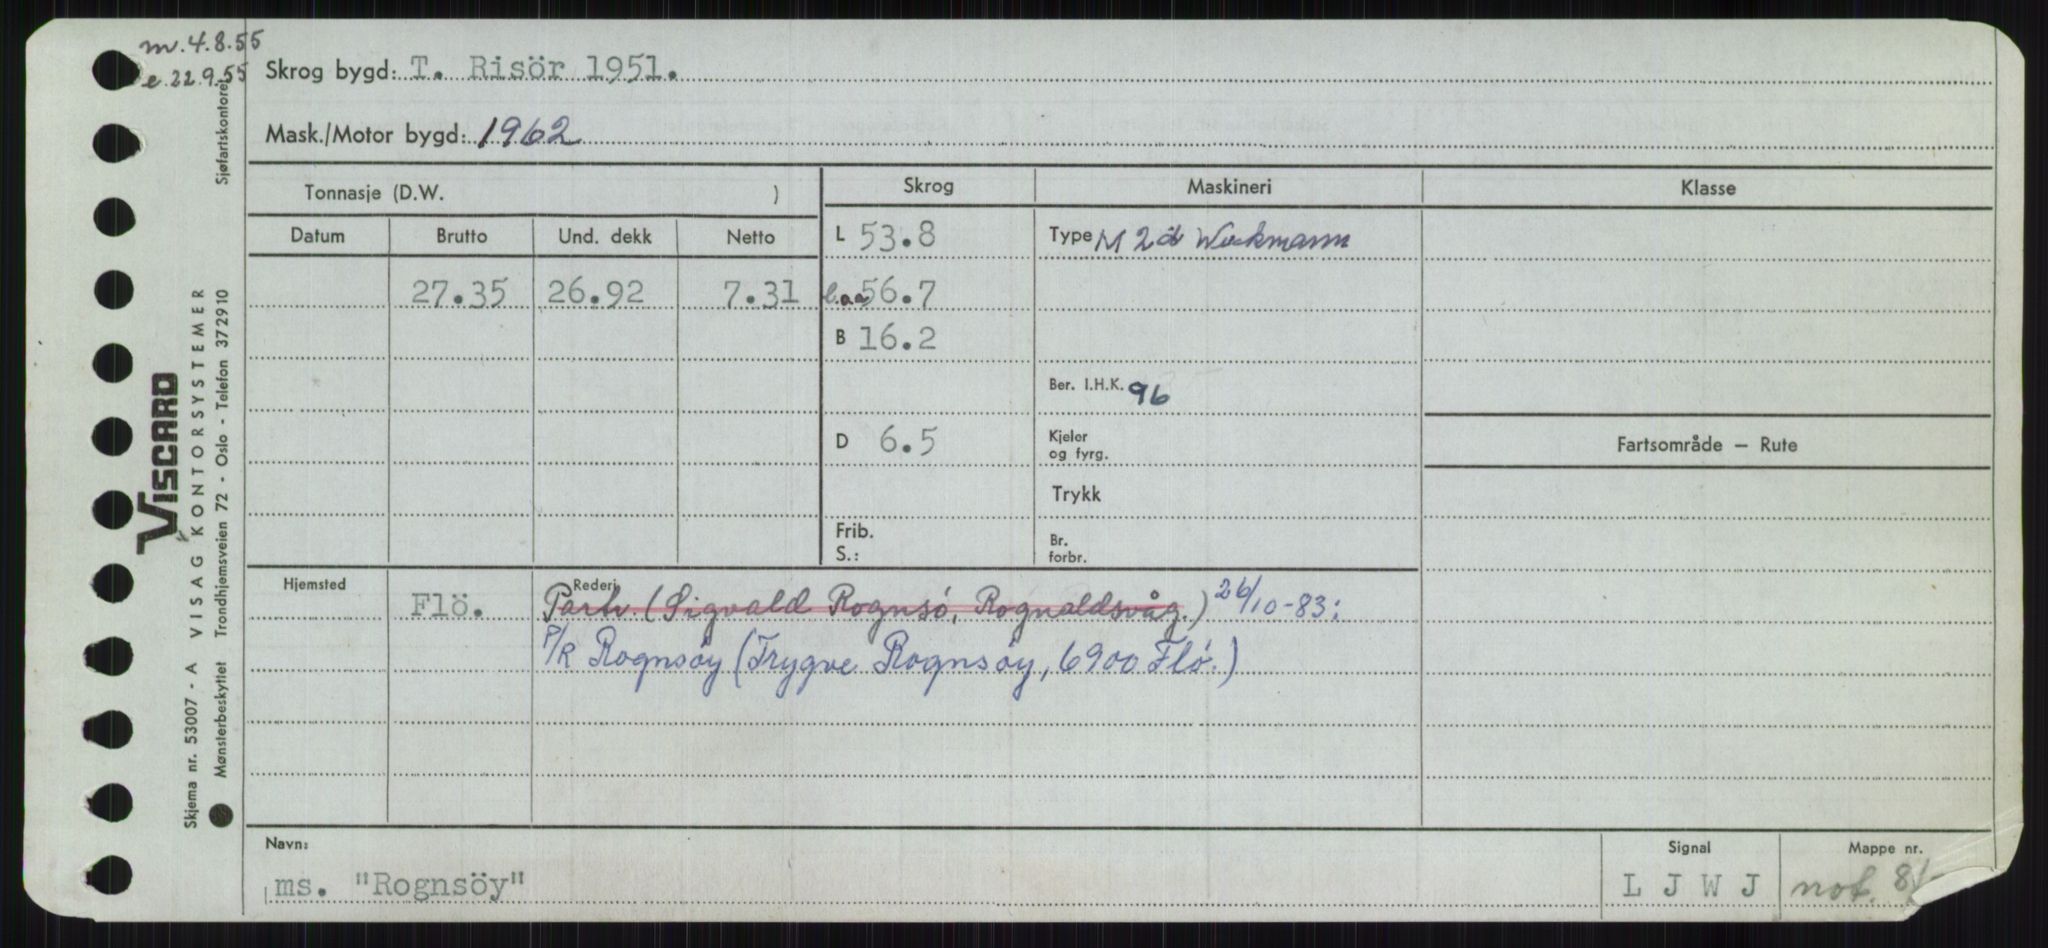 m. 4.8.55
e. 22.9.55
Skrog bygd: T. Risör 1951.
Mask./Motor bygd: 1962
Tonnasje (D.W. ) Skrog Maskineri Klasse
Datum Brutto Und. dekk Netto L 53.8 Type M 2d Wickmann
27.35 26.92 7.31 l.aa 56.7
B 16.2
Ber. I.H.K. 96
D 6.5 Kjeler og fyrg. Fartsområde — Rute
Trykk
Frib. S.: Br. forbr.
Hjemsted Rederi
Flö. Partr. (Sigvald Rognsö, Rognaldsvåg.) 26/10-83:
P/R Rognsöy (Trygve Rognsöy, 6900 Flö.)
Navn: Signal Mappe nr.
ms. "Rognsöy" L J W J not.
VISCARD
Skjema nr. 53007 - A VISAG KONTORSYSTEMER Sjøfartskontoret
Mønsterbeskyttet Trondhjemsveien 72 - Oslo - Telefon 372910